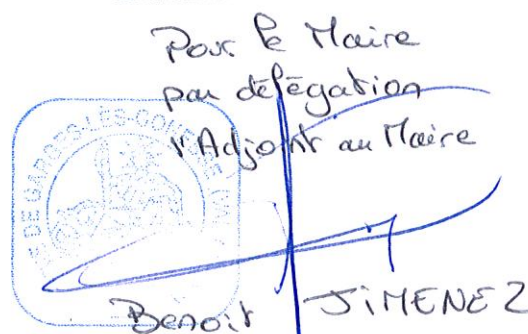 Pour le Maire
par délégation
l'Adjoint au Maire
DE GARGES-LÈS-GONESSE
Benoit JIMENEZ